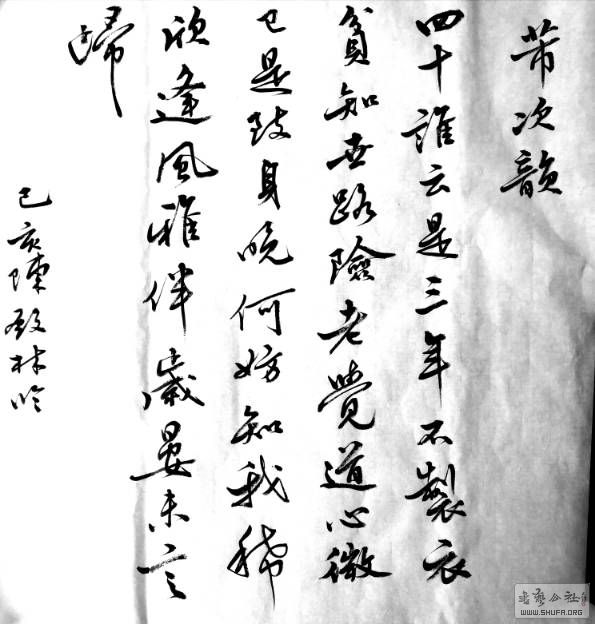 芾次韻
四十誰云是三年不製衣
貧知世路險老覺道心微
已是致身晚何妨知我稀
欣逢風雅伴歲晏未言
歸
己亥陳林吟
書藝公社
WWW.SHUFA.ORG